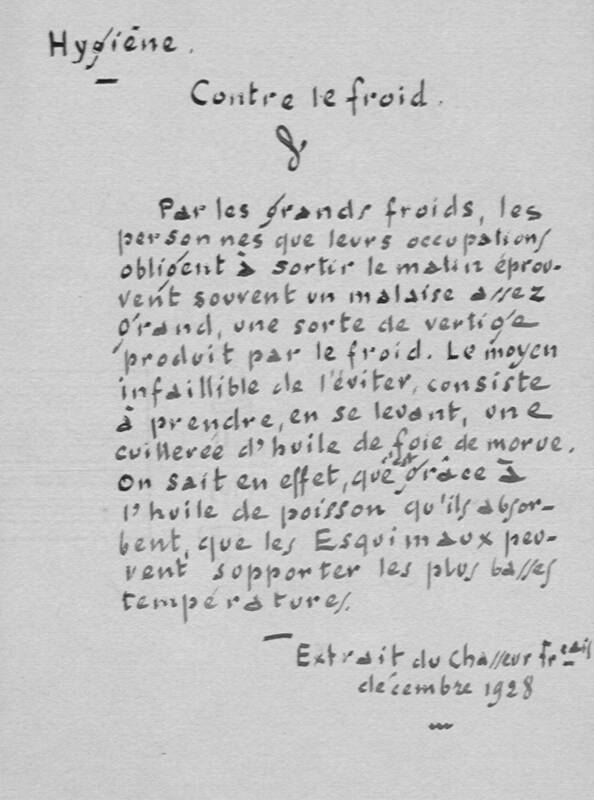 Hygiène.
Contre le froid.
Par les grands froids, les
personnes que leurs occupations
obligent à sortir le matin éprou-
vent souvent un malaise assez
grand, une sorte de vertige
produit par le froid. Le moyen
infaillible de l'éviter, consiste
à prendre, en se levant, une
cuillerée d'huile de foie de morue.
On sait en effet, que c'est grâce à
l'huile de poisson qu'ils absor-
bent, que les Esquimaux peu-
vent supporter les plus basses
températures.
Extrait du Chasseur frçais
décembre 1928